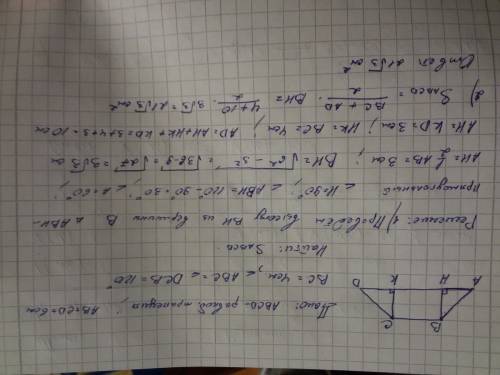 Дано: ABCD-равноб. трапеция; AB=CD=6см
BC=4см, ∠ABC=∠DCB=120°
Найти: Sabcd.
Решение: 1) Проведём высоту BH из вершины B △ABH-
Прямоугольный ∠H=90°; ∠ABH=120°-90°=30° ∠A=60°;
AH=½AB=3см; BH=√6²-3²=√36-9=√27=3√3см
AH=KD=3см; HK=BC=4см; AD=AH+HK+KD=3+4+3=10см
2) Sabcd=BC+AD/2·BH=4+10/2·3√3=21√3см²
Ответ 21√3см²
A H K D
B C